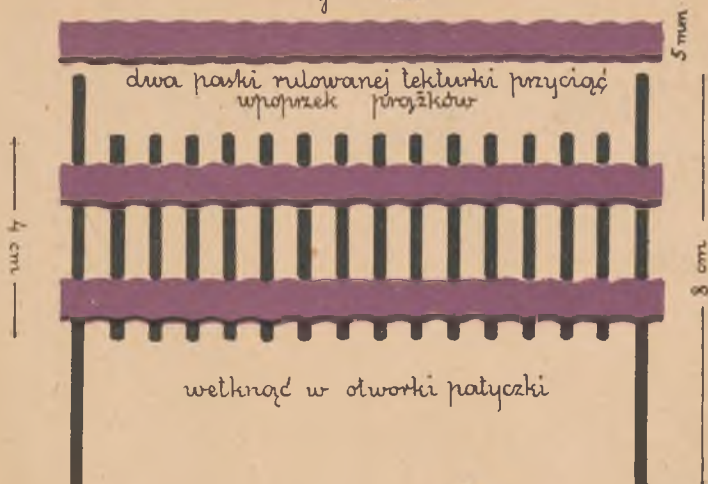 5 mm
dwa paski rulowanej tekturki przyciąć
wpoprzek prążków
4 cm
8 cm
wetknąć w otworki patyczki